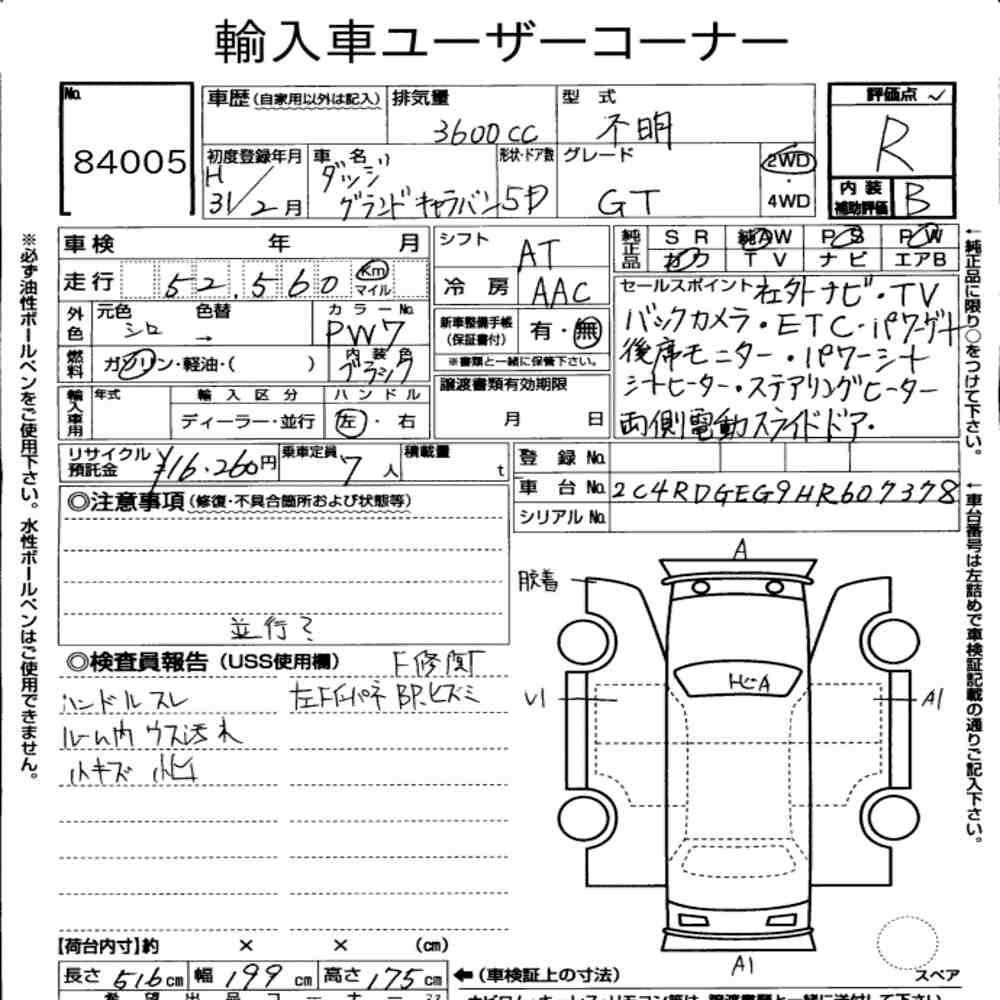 輸入車ユーザーコーナー
No. 84005
車歴(自家用以外は記入) 排気量 3600cc 型式 不明
評価点 ✓ R
初度登録年月 H31/2月 車名 ダッジ グランドキャラバン 形状・ドア数 5D グレード GT 2WD・4WD
内装補助評価 B
車検 年 月
走行 52,560 Km マイル
外色 元色 シロ 色替 → カラーNo. PW7
燃料 ガソリン・軽油・( ) 内装色 ブラック
輸入車用 年式 輸入区分 ディーラー・並行 ハンドル 左・右
シフト AT
冷房 AAC
新車整備手帳(保証書付) 有・無
※書類と一緒に保管下さい。
譲渡書類有効期限
月 日
純正品 SR 純AW PS PW
カワ TV ナビ エアB
セールスポイント 社外ナビ・TV
バックカメラ・ETC・パワーゲート
後席モニター・パワーシート
シートヒーター・ステアリングヒーター
両側電動スライドドア・
リサイクル預託金 ¥16,260円 乗車定員 7人 積載量 t
登録No.
車台No. 2C4RDGEG9HR607378
シリアルNo.
◎注意事項(修復・不具合箇所および状態等)
並行?
◎検査員報告(USS使用欄) F修関T
ハンドルスレ
ルーム内ウス汚れ
小キズ 小ヒ
BP.ヒズミ
A
脱着
U1
トビA
A1
A1
スペア
【荷台内寸】約 × × (cm)
長さ 516cm 幅 199cm 高さ 175cm
←(車検証上の寸法)
※必ず油性ボールペンをご使用下さい。水性ボールペンはご使用できません。
←純正品に限り○をつけて下さい。
←車台番号は左詰めで車検証記載の通りご記入下さい。